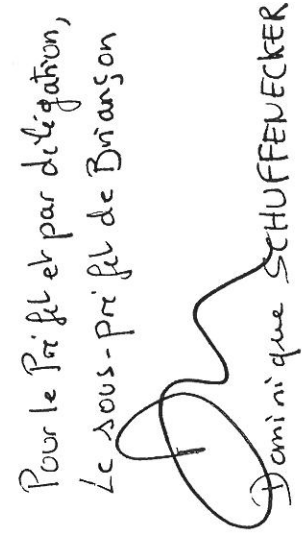 Pour le Préfet et par délégation,
Le sous-préfet de Briançon
Dominique SCHUFFENECKER